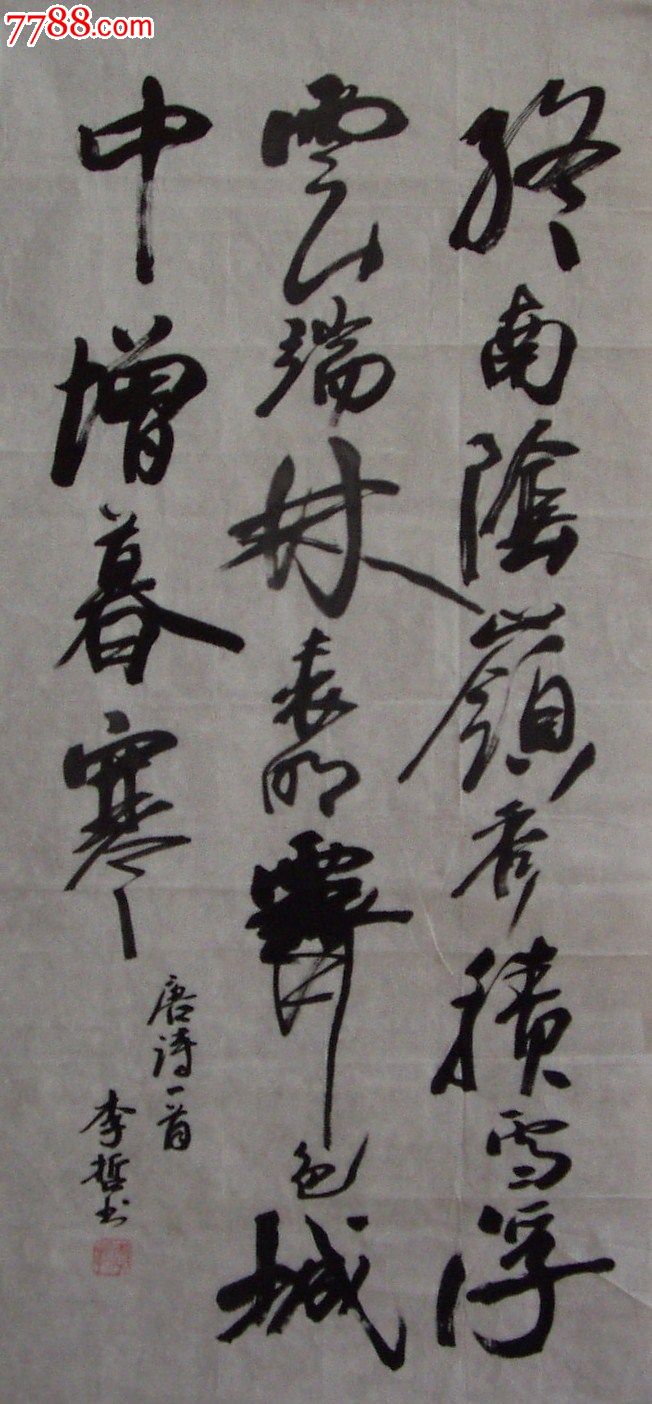 7788.com
終南陰嶺秀積雪浮
雲端林表明霽色城
中增暮寒
唐詩一首
李哲书